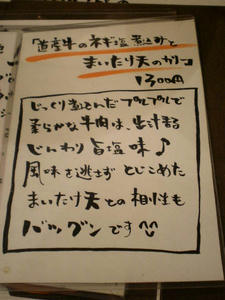 「道産牛のネギ塩煮込みと
まいたけ天のかり」
1300円
じっくり煮込んだプルプルで
柔らかな牛肉は、
じんわり旨塩味♪
風味を逃さず とじこめた
まいたけ天との相性も
バツグンです